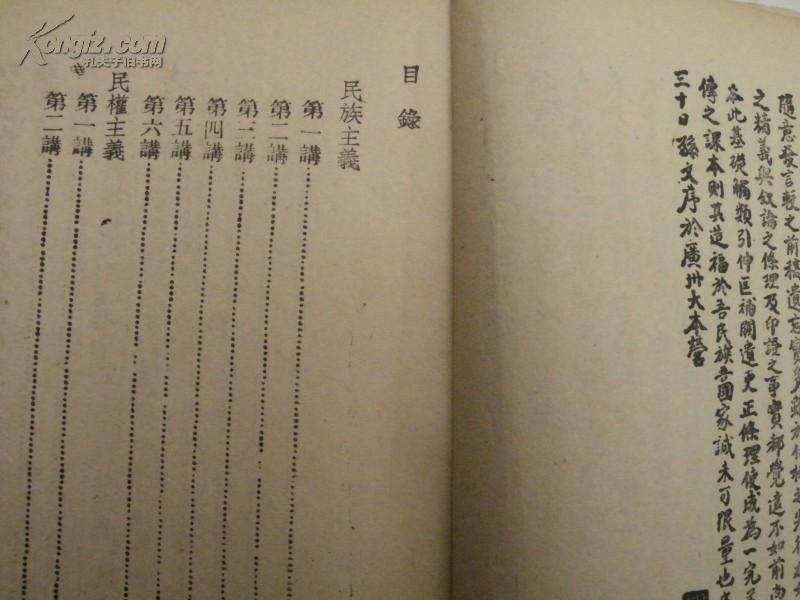 隨意發言較之前稿遺忘實多雖於付梓之先
之精義與敘論之條理及印證之事實都覺遠不如前尚
本此基礎觸類引伸匡補闕遺更正條理使成為一完
傳之課本則其造福於吾民族吾國家誠未可限量也
三十日孫文序於廣州大本營
目錄
民族主義
第一講
第二講
第三講
第四講
第五講
第六講
民權主義
第一講
第二講
Kongfz.com
孔夫子旧书网